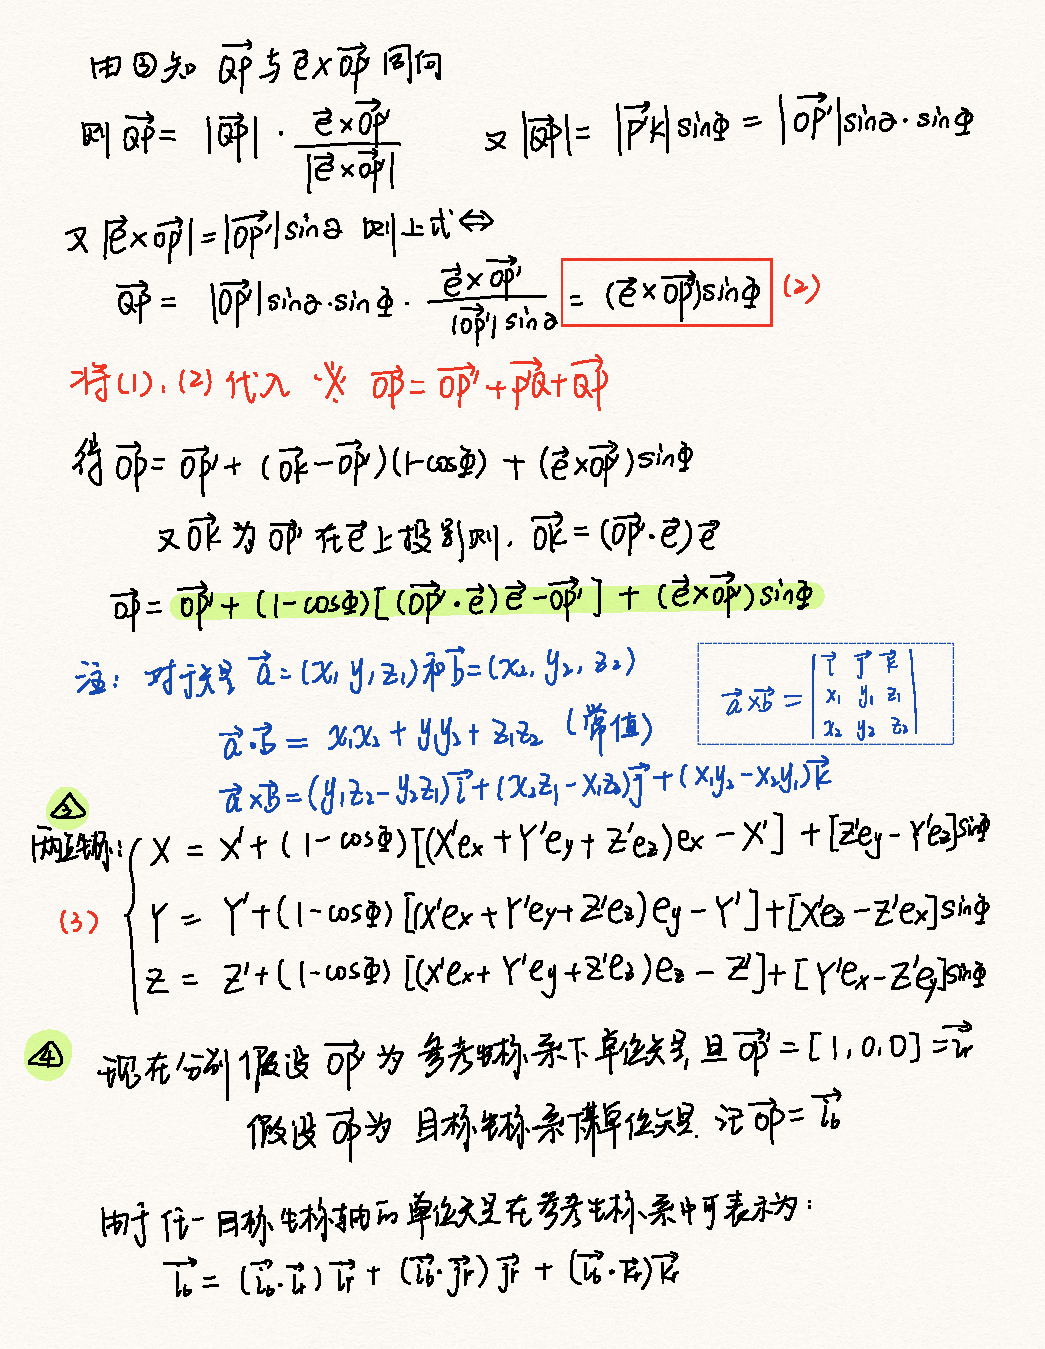 由③知 $\vec{QP}$ 与 $\vec{e}\times\vec{OP'}$ 同向
则 $\vec{QP} = |\vec{QP}| \cdot \frac{\vec{e}\times\vec{OP'}}{|\vec{e}\times\vec{OP'}|}$ 又 $|\vec{QP}| = |\vec{P'K}|\sin\Phi = |\vec{OP'}|\sin\partial\cdot\sin\Phi$
又 $|\vec{e}\times\vec{OP'}| = |\vec{OP'}|\sin\partial$ 则上式 ⇔
$\vec{QP} = |\vec{OP'}|\sin\partial\cdot\sin\Phi\cdot\frac{\vec{e}\times\vec{OP'}}{|\vec{OP'}|\sin\partial} = (\vec{e}\times\vec{OP'})\sin\Phi$ (2)
将(1),(2)代入 ※ $\vec{OP} = \vec{OP'} + \vec{P'Q} + \vec{QP}$
得 $\vec{OP} = \vec{OP'} + (\vec{OK} - \vec{OP'})(1-\cos\Phi) + (\vec{e}\times\vec{OP'})\sin\Phi$
又 $\vec{OK}$ 为 $\vec{OP'}$ 在 $\vec{e}$ 上投影则, $\vec{OK} = (\vec{OP'}\cdot\vec{e})\vec{e}$
$\vec{OP} = \vec{OP'} + (1-\cos\Phi)[(\vec{OP'}\cdot\vec{e})\vec{e} - \vec{OP'}] + (\vec{e}\times\vec{OP'})\sin\Phi$
注: 对于矢量 $\vec{a} = (x_1, y_1, z_1)$ 和 $\vec{b} = (x_2, y_2, z_2)$
$\vec{a}\cdot\vec{b} = x_1x_2 + y_1y_2 + z_1z_2$ (常值)
$\vec{a}\times\vec{b} = \begin{vmatrix} \vec{i} & \vec{j} & \vec{k} \\ x_1 & y_1 & z_1 \\ x_2 & y_2 & z_2 \end{vmatrix}$
$\vec{a}\times\vec{b} = (y_1z_2 - y_2z_1)\vec{i} + (x_2z_1 - x_1z_2)\vec{j} + (x_1y_2 - x_2y_1)\vec{k}$
③
$X = X' + (1-\cos\Phi)[(X'e_x + Y'e_y + Z'e_z)e_x - X'] + [Z'e_y - Y'e_z]\sin\Phi$
(3) $Y = Y' + (1-\cos\Phi)[(X'e_x + Y'e_y + Z'e_z)e_y - Y'] + [X'e_z - Z'e_x]\sin\Phi$
$Z = Z' + (1-\cos\Phi)[(X'e_x + Y'e_y + Z'e_z)e_z - Z'] + [Y'e_x - Z'e_y]\sin\Phi$
④ 现在分别假设 $\vec{OP'}$ 为参考坐标系下单位矢量, 且 $\vec{OP'} = [1,0,0] = \vec{i_r}$
假设 $\vec{OP}$ 为 目标坐标系下单位矢量 记 $\vec{OP} = \vec{i_b}$
由于任一目标坐标轴的单位矢量在参考坐标系中可表示为:
$\vec{i_b} = (\vec{i_b}\cdot\vec{i_r})\vec{i_r} + (\vec{i_b}\cdot\vec{j_r})\vec{j_r} + (\vec{i_b}\cdot\vec{k_r})\vec{k_r}$